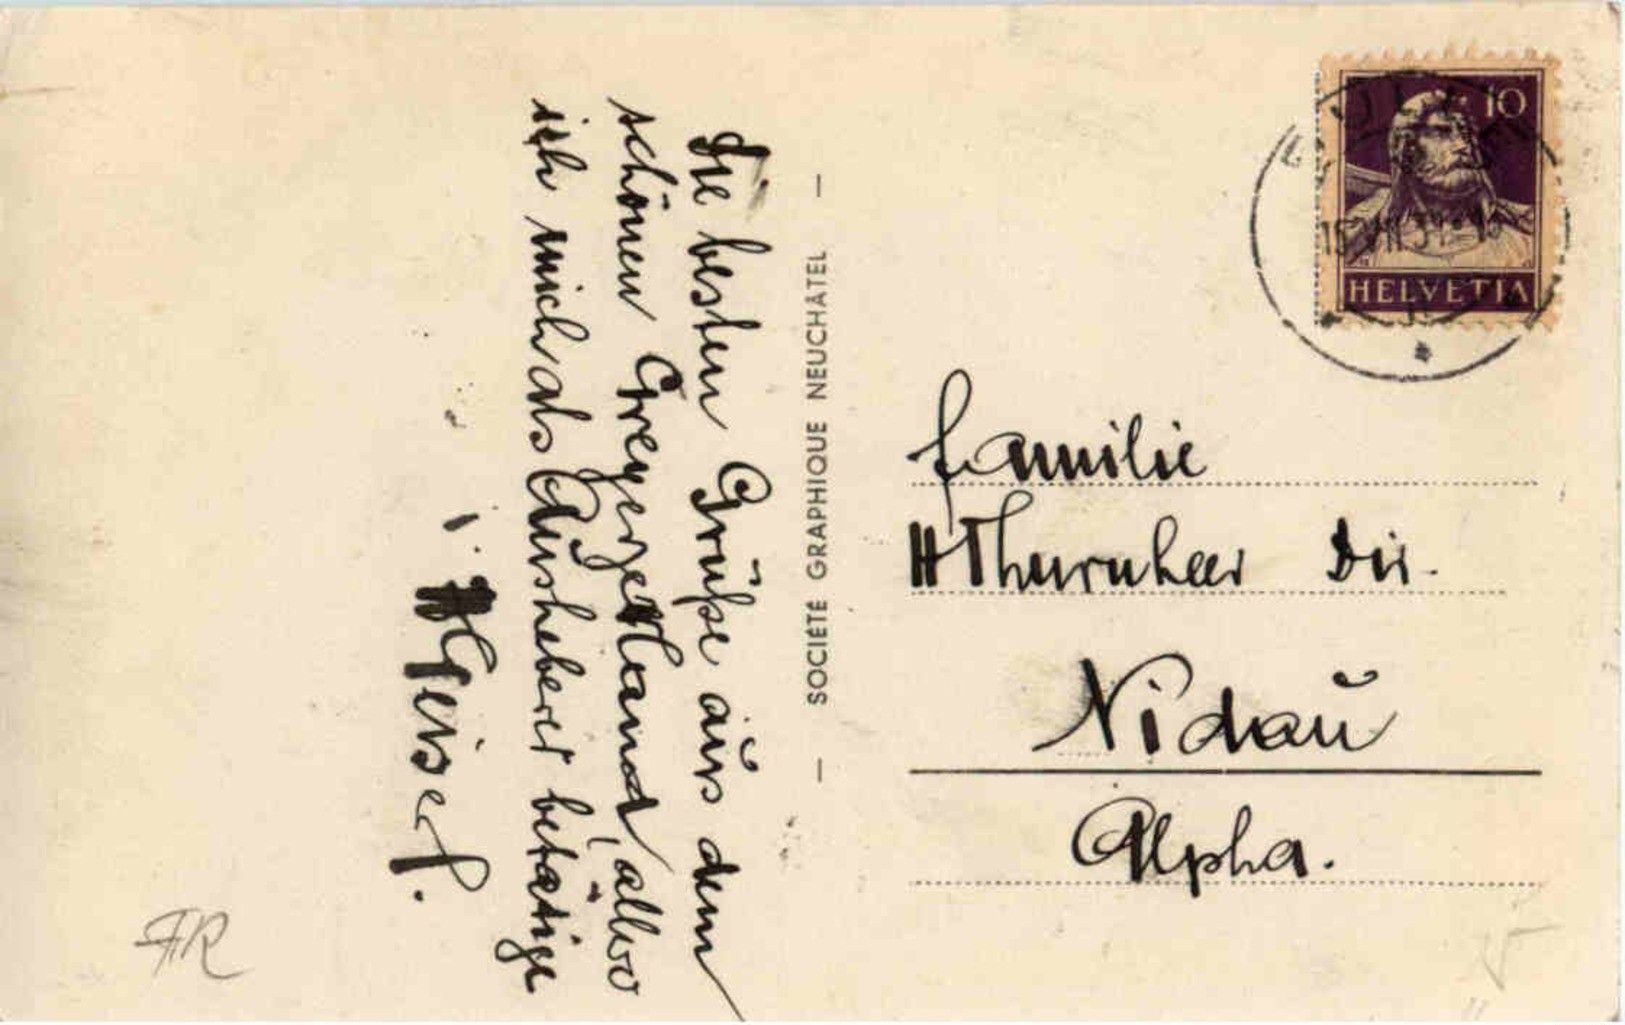 Die besten Grüße aus dem
schönen Greyerzerland, allwo
ich mich als Ausheber betätige
SOCIÉTÉ GRAPHIQUE NEUCHÂTEL
10
HELVETIA
Familie
Thurnheer Dir.
Nidau
Alpha.
FR